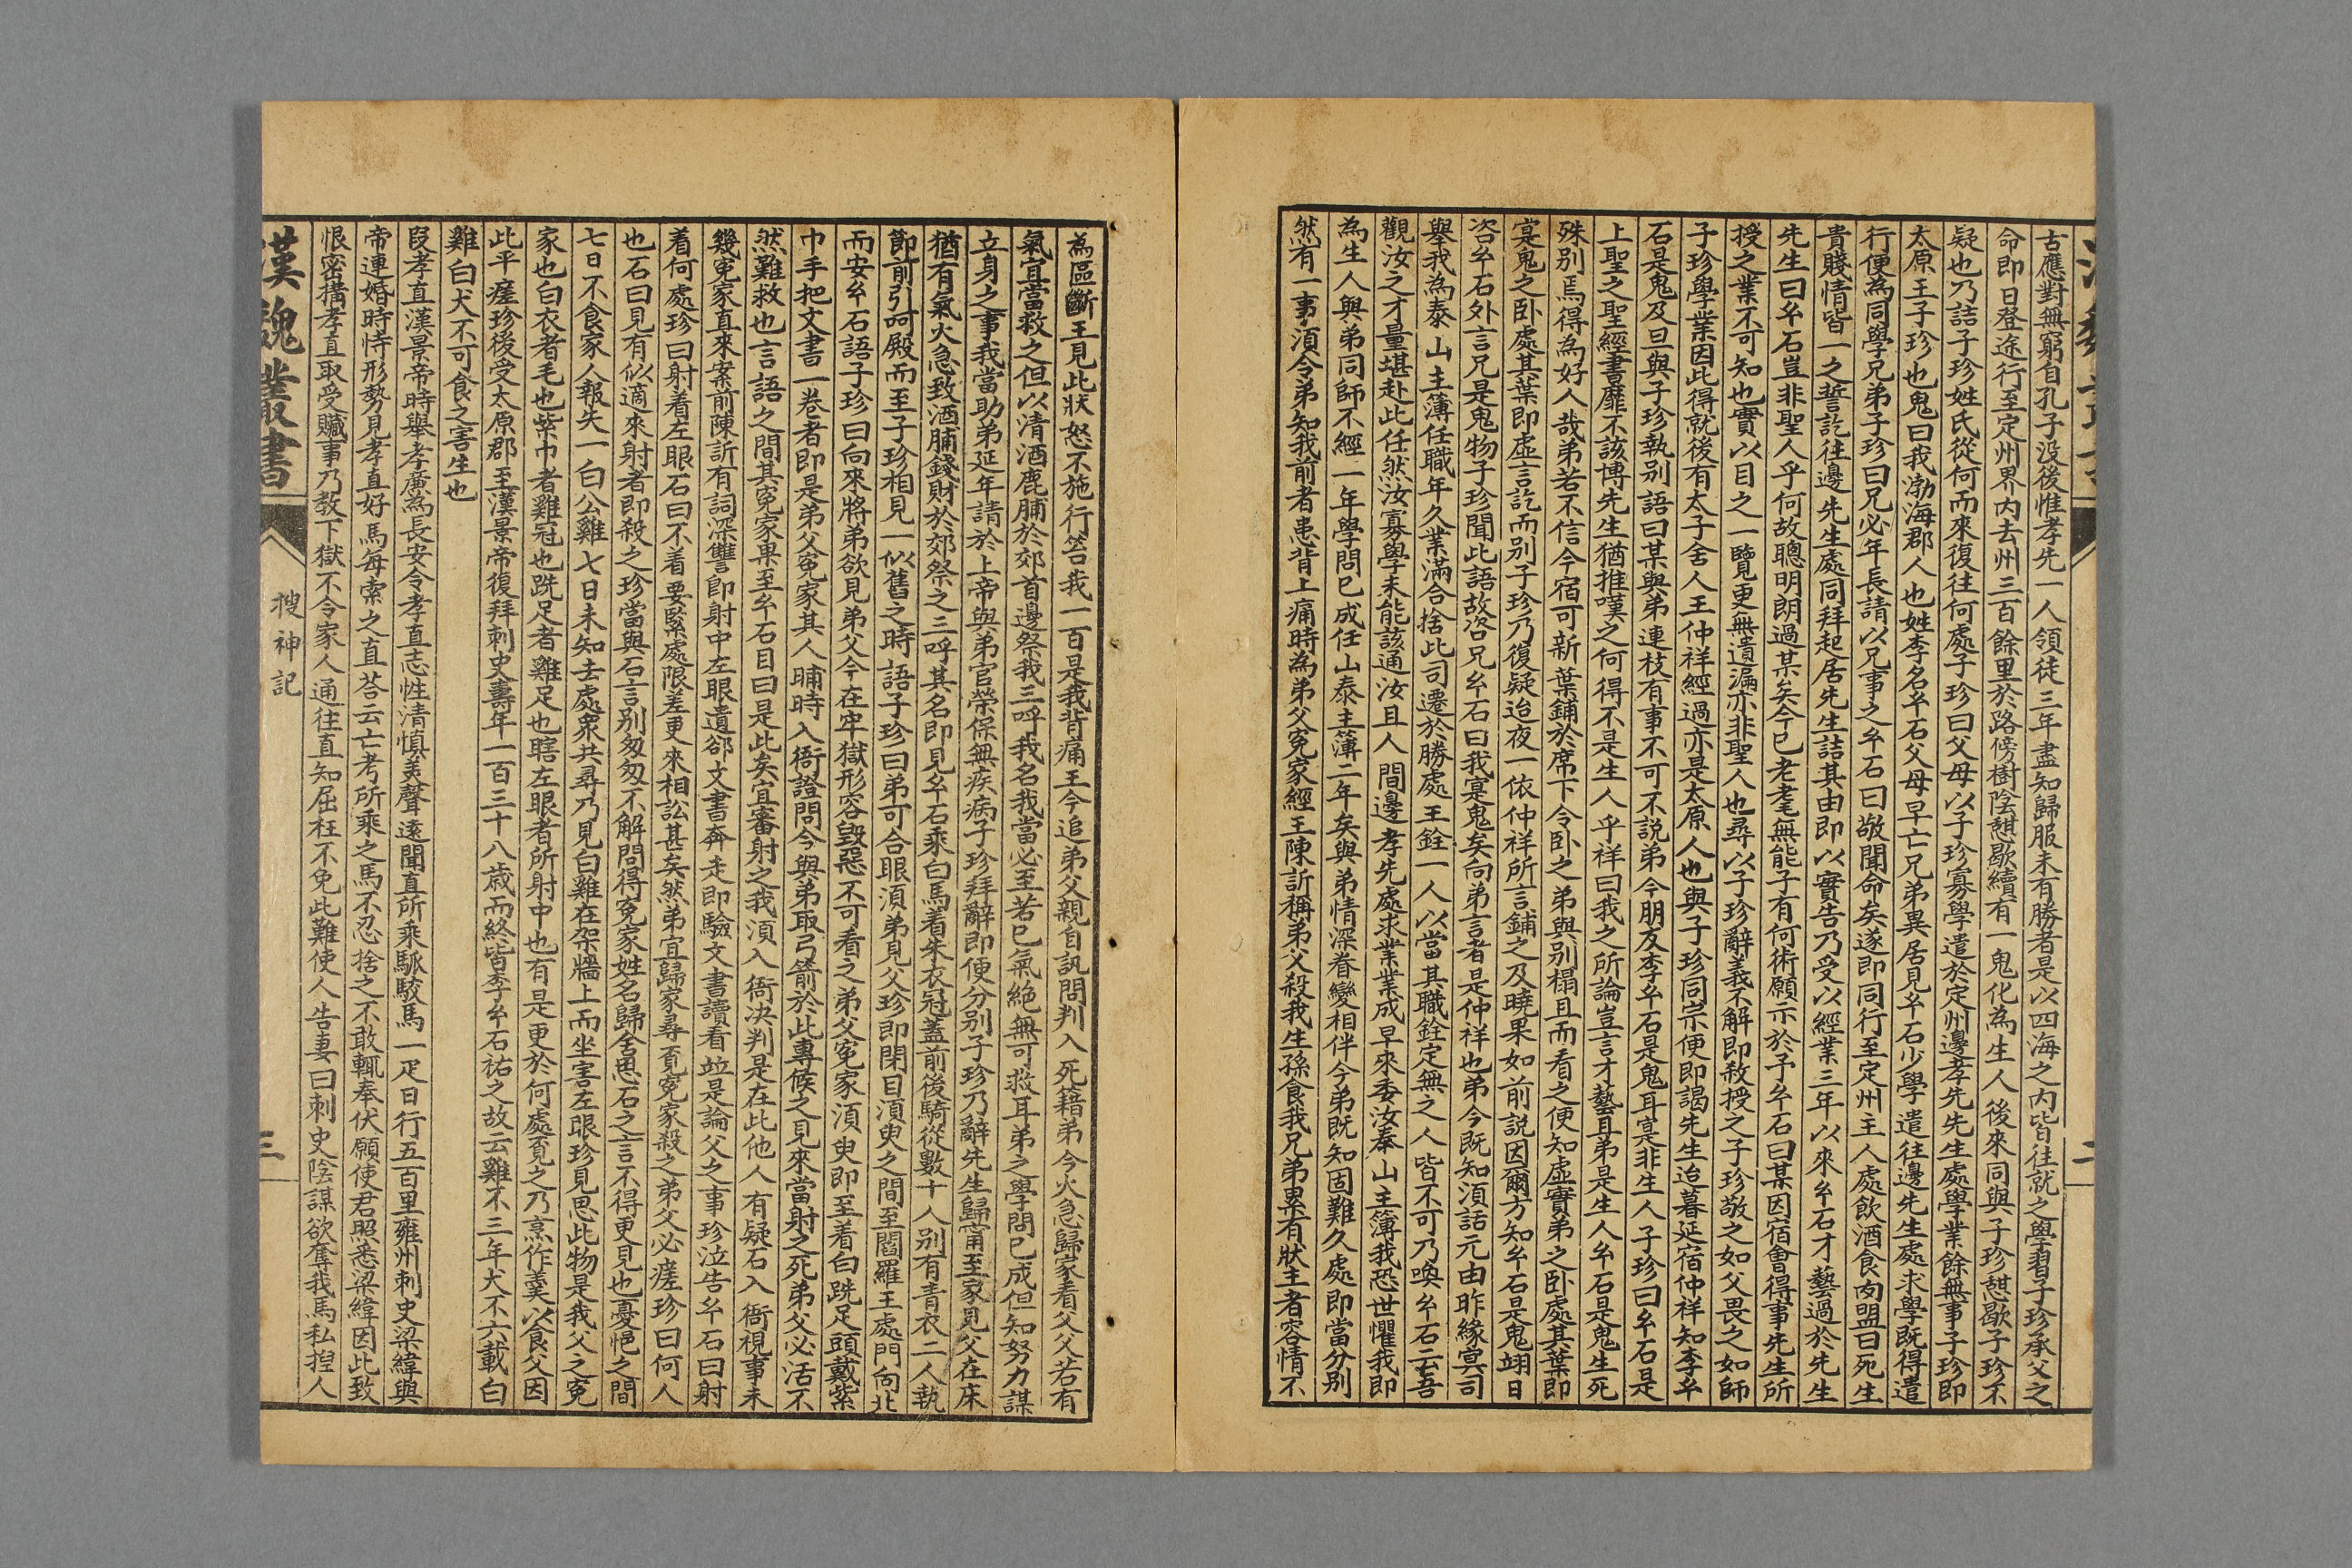 古應對無窮自孔子没後惟孝先一人領徒三年盡知歸服未有勝者是以四海之内皆往就之學習子珍承父之
命即日登途行至定州界内去州三百餘里於路傍樹陰憇歇續有一鬼化為生人後來同與子珍憇歇子珍不
疑也乃詰子珍姓氏從何而來復往何處子珍曰父母以子珍寡學遣於定州邊孝先先生處學業餘無事子珍即
太原王子珍也鬼曰我渤海郡人也姓李名幺石父母早亡兄弟異居見幺石少學遣往邊先生處求學既得遣
行便為同學兄弟子珍曰兄必年長請以兄事之幺石曰敬聞命矣遂即同行至定州主人處飲酒食肉盟曰死生
貴賤情皆一之誓訖往邊先生處同拜起居先生詰其由即以實告乃受以經業三年以來幺石才藝過於先生
先生曰幺石豈非聖人乎何故聰明朗過某矣今已老耄無能子有何術願示於予幺石曰某因宿會得事先生所
授之業不可知也實以目之一覽更無遺漏亦非聖人也尋以子珍辭義不解即教授之子珍敬之如父畏之如師
子珍學業因此得就後有太子舍人王仲祥經過亦是太原人也與子珍同宗便即謁先生迨暮延宿仲祥知李幺
石是鬼及旦與子珍執别語曰某與弟連枝有事不可不説弟今朋友李幺石是鬼耳寔非生人子珍曰幺石是
上聖之聖經書靡不該博先生猶推嘆之何得不是生人乎祥曰我之所論豈言才藝耳弟是生人幺石是鬼生死
殊别焉得為好人哉弟若不信今宿可新葉鋪於席下令卧之弟與别榻且而看之便知虚實弟之卧處其葉即
寔鬼之卧處其葉即虚言訖而别子珍乃復疑迨夜一依仲祥所言鋪之及曉果如前説因爾方知幺石是鬼翊日
咨幺石外言兄是鬼物子珍聞此語故咨兄幺石曰我寔鬼矣向弟言者是仲祥也弟今既知須話元由昨緣冥司
舉我為泰山主簿任職年久業滿合捨此司遷於勝處王銓一人以當其職銓定無之人皆不可乃喚幺石云吾
觀汝之才量堪赴此任然汝寡學未能該通汝且人間邊孝先處求業業成早來委汝泰山主簿我恐世懼我即
為生人與弟同師不經一年學問已成任山泰主簿二年矣與弟情深眷戀相伴今弟既知固難久處即當分别
然有一事須令弟知我前者患背上痛時為弟父寃家經王陳訢稱弟父殺我生孫食我兄弟累有狀主者容情不
二
為區斷王見此狀怒不施行笞我一百是我背痛王今追弟父親自訊問判入死籍弟今火急歸家看父父若有
氣宜當救之但以清酒鹿脯於郊首邊祭我三呼我名我當必至若已氣絶無可救耳弟之學問已成但知努力謀
立身之事我當助弟延年請於上帝與弟官榮保無疾病子珍拜辭即便分别子珍乃辭先生歸甯至家見父在床
猶有氣火急致酒脯錢財於郊祭之三呼其名即見幺石乘白馬着朱衣冠蓋前後騎從數十人别有青衣二人執
節前引呵殿而至子珍相見一似舊之時語子珍曰弟可合眼須弟見父珍即閉目須臾之間至閻羅王處門向北
而安幺石語子珍曰向來將弟欲見弟父今在牢獄形容毀惡不可看之弟父寃家須臾即至着白跣足頭戴紫
巾手把文書一卷者即是弟父寃家其人晡時入衙證問今與弟取弓箭於此專候之見來當射之死弟父必活不
然難救也言語之間其寃家果至幺石目曰是此矣宜審射之我須入衙决判是在此他人有疑石入衙視事未
幾寃家直來案前陳訢有詞深讐即射中左眼遺郤文書奔走即驗文書讀看竝是論父之事珍泣告幺石曰射
着何處珍曰射着左眼石曰不着要緊處限差更來相訟甚矣然弟宜歸家尋覔寃家殺之弟父必瘥珍曰何人
也石曰見有似適來射者即殺之珍當與石言别匆匆不解問得寃家姓名歸舍思石之言不得更見也憂悒之間
七日不食家人報失一白公雞七日未知去處衆共尋乃見白雞在架牆上而坐害左眼珍見思此物是我父之寃
家也白衣者毛也紫巾者雞冠也跣足者雞足也瞎左眼者所射中也有是更於何處覔之乃烹作羹以食父因
此平瘥珍後受太原郡王漢景帝復拜刺史壽年一百三十八歳而終皆李幺石祐之故云雞不三年犬不六載白
雞白犬不可食之害生也
叚孝直漢景帝時舉孝廉為長安令孝直志性清慎美聲遠聞直所乘駃駿馬一疋日行五百里雍州刺史梁緯與
帝連婚時恃形勢見孝直好馬每索之直荅云亡考所乘之馬不忍捨之不敢輒奉伏願使君照悉梁緯因此致
恨密搆孝直取受贓事乃教下獄不令家人通往直知屈枉不免此難使人告妻曰刺史陰謀欲奪我馬私揑人
漢魏叢書
搜神記
三